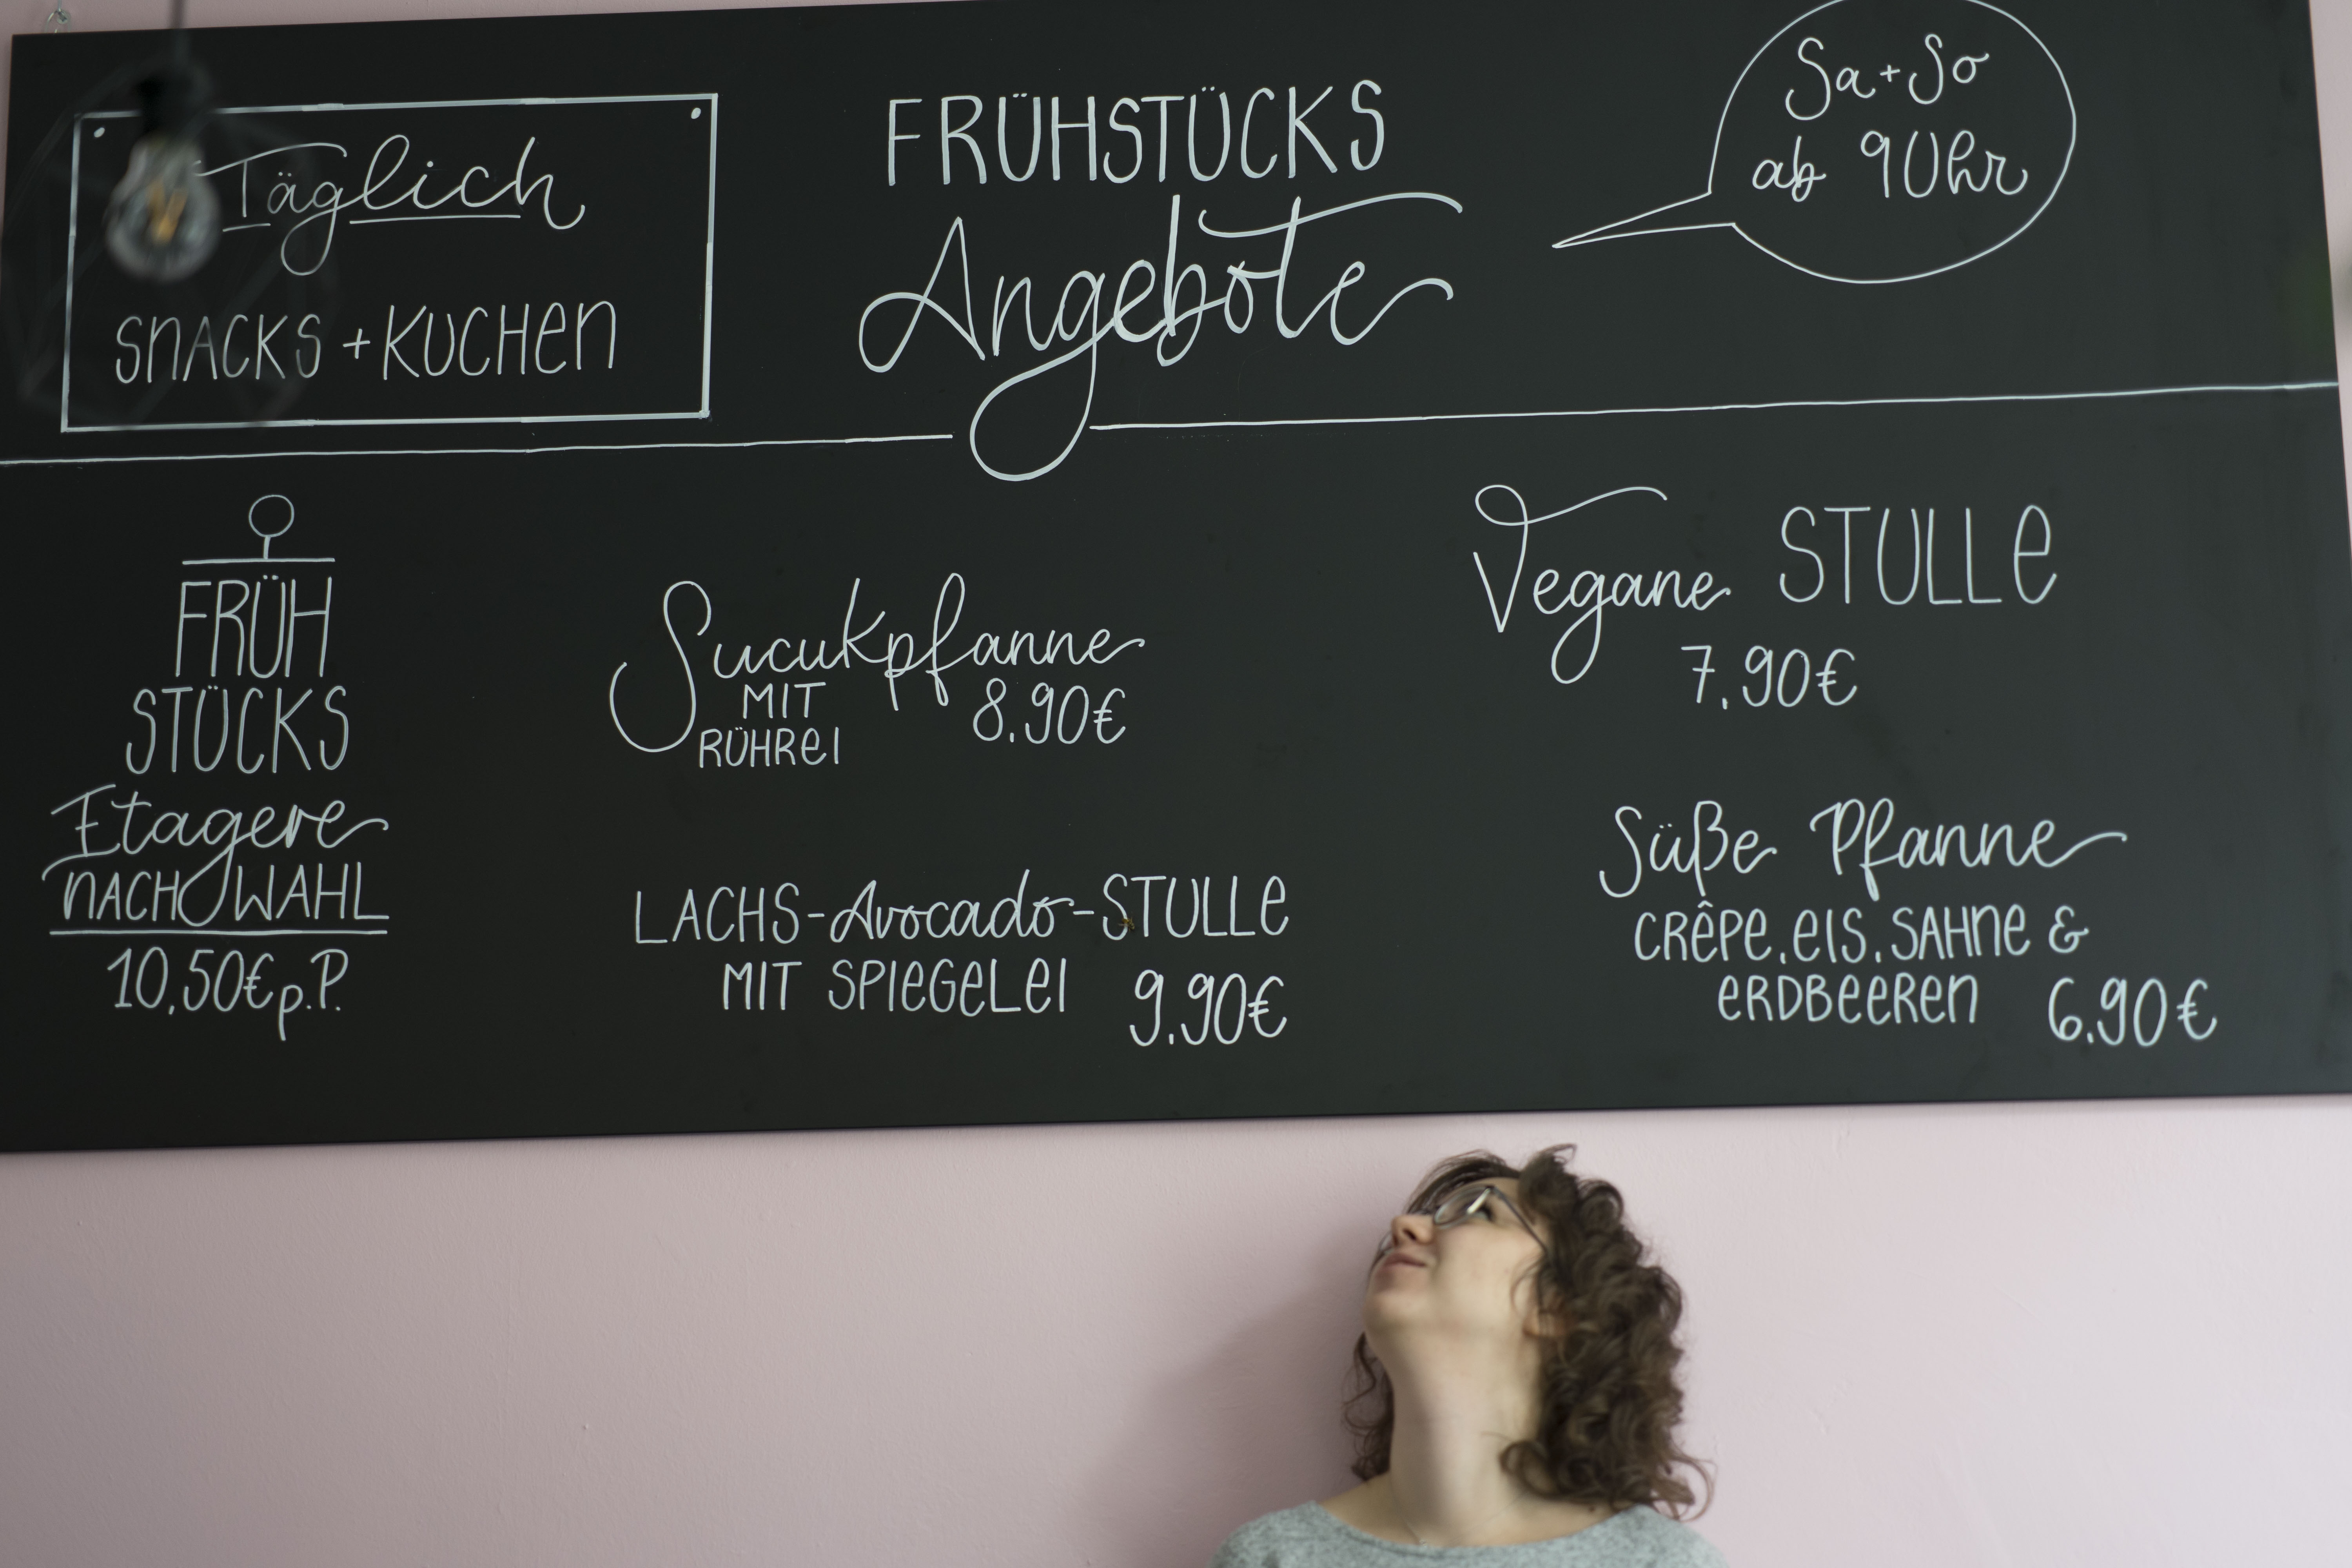 Täglich
SNACKS + KUCHEN
FRÜHSTÜCKS
Angebote
Sa + So
ab 9 Uhr
FRÜH
STÜCKS
Etagere
NACH WAHL
10,50€ p.P.
Sucukpfanne
MIT
RÜHREI
8.90€
LACHS-Avocado-STULLE
MIT SPIEGELEI 9.90€
Vegane STULLE
7.90€
Süße Pfanne
CRÊPE, EIS, SAHNE &
ERDBEEREN 6.90€